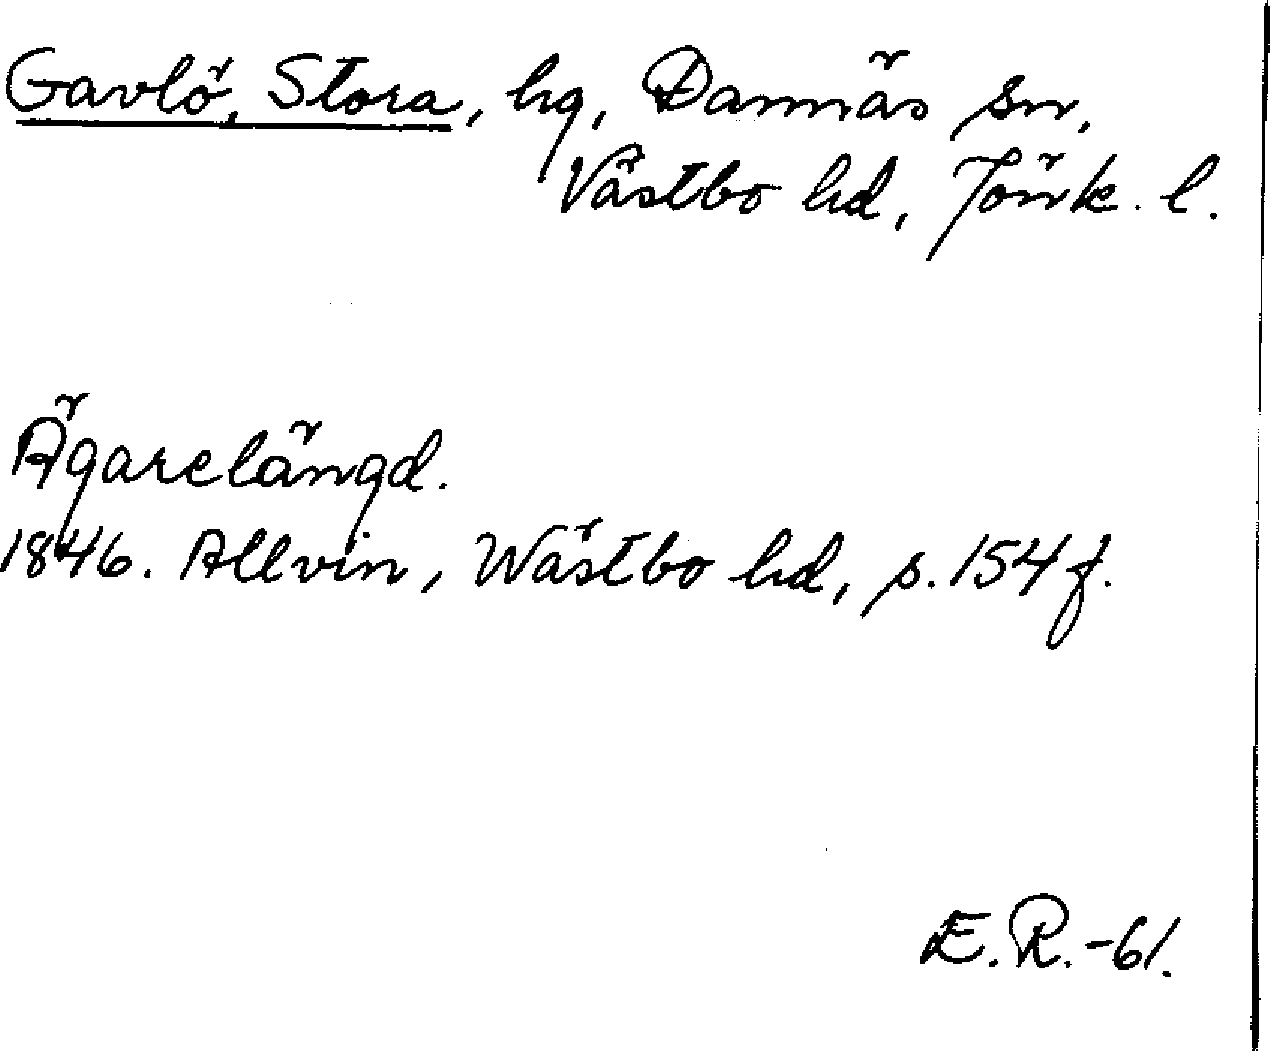 Gavlö, Stora, hg, Dannäs sn,
Västbo hd, Jönk. l.
Ägarelängd.
1846. Allvin, Wästbo hd, s. 154 f.
E. R. -61.